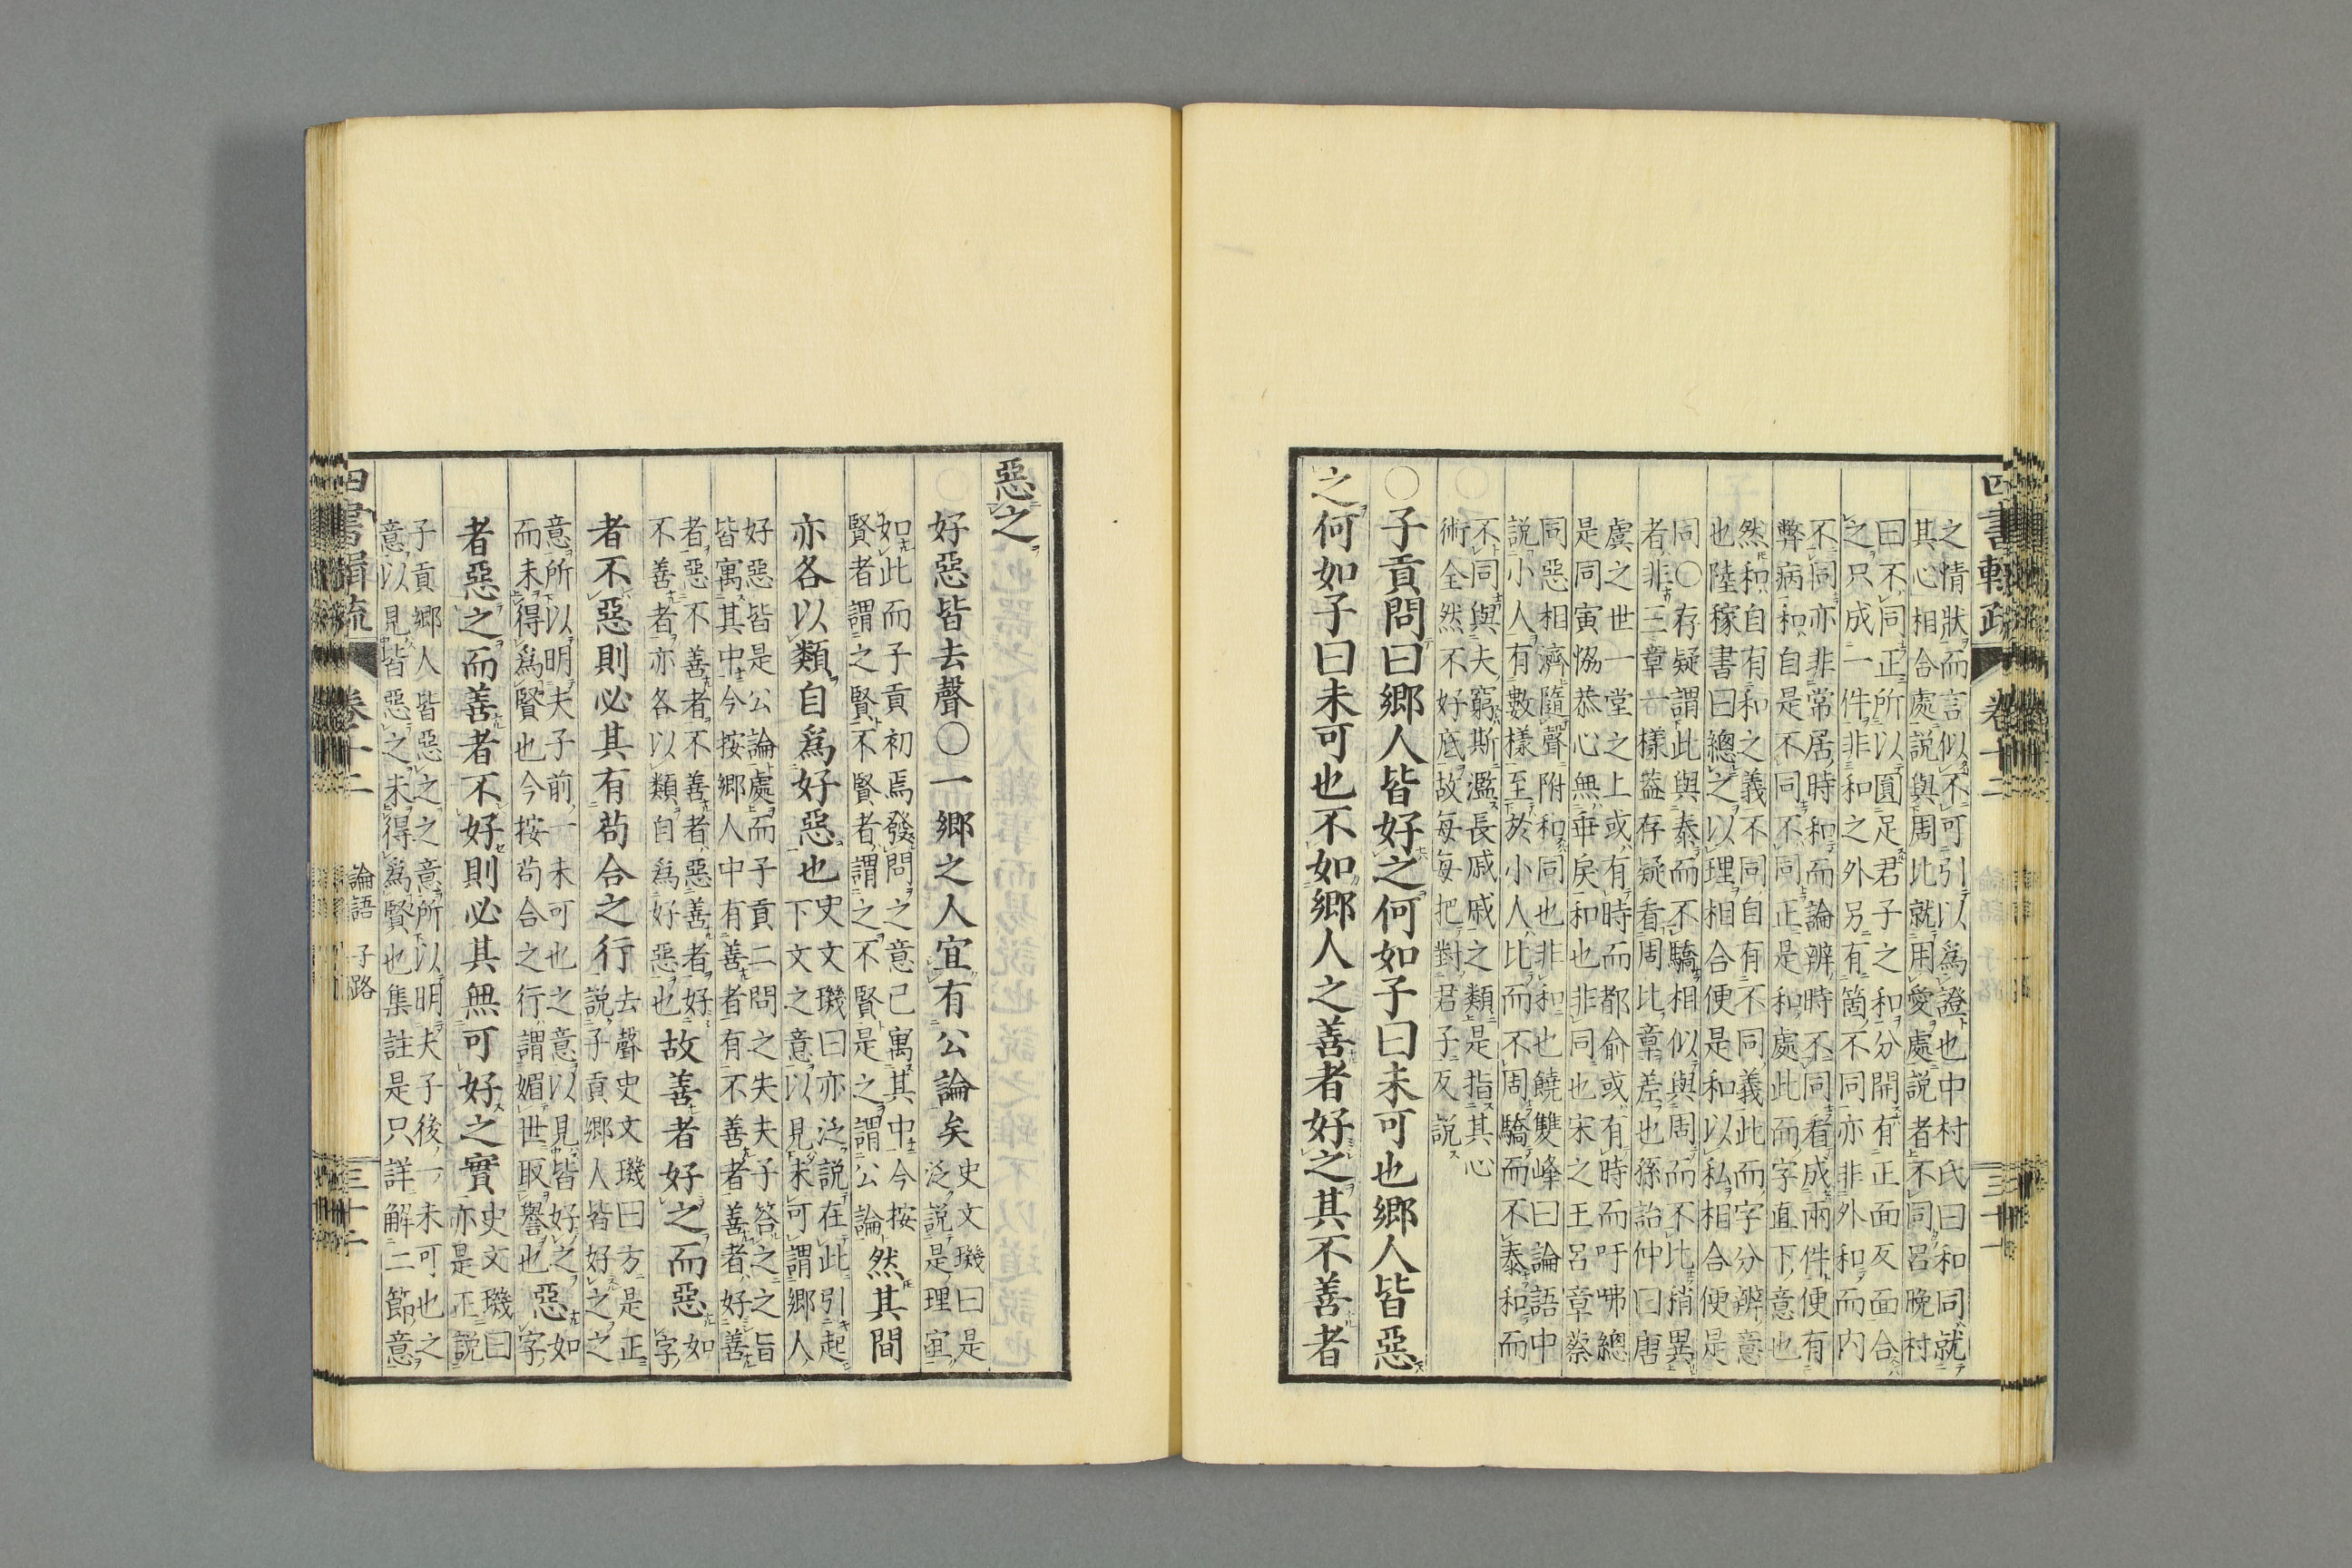 四書輯疏 卷十二 三十一
之情狀而言似不可引以爲證也中村氏曰和同就
其心相合處說與周比就用愛處說者不同呂晚村
曰不同正所以圓足君子之和分開有正面反面合
之只成一件非和之外另有箇不同亦非外和而内
不同亦非常居時和而論辨時不同看成兩件便有
弊病和自是不同不同正是和處此而字直下意也
然和自有和之義不同自有不同義此而字分辨意
也陸稼書曰總之以理相合便是和以私相合便是
同○存疑謂此與泰而不驕相似與周而不比稍異
者非三章一樣蓋存疑看周比章差也孫詒仲曰唐
虞之世一堂之上或有時而都俞或有時而吁咈總
是同寅恊恭心無乖戾和也非同也宋之王呂章蔡
同惡相濟隨聲附和同也非和也饒雙峰曰論語中
說小人有數樣至於小人比而不周驕而不泰和而
不同與夫窮斯濫長戚戚之類是指其心
術全然不好底故每每把對君子反說
○子貢問曰鄉人皆好之何如子曰未可也鄉人皆惡
之何如子曰未可也不如鄉人之善者好之其不善者
惡之
好惡皆去聲○一鄉之人宜有公論矣
史文璣曰是
泛說是理宜
如此而子貢初焉發問之意已寓其中今按
賢者謂之賢不賢者謂之不賢是之謂公論
然其間
亦各以類自爲好惡也
史文璣曰亦泛說在此引起
下文之意以見未可謂鄉人
好惡皆是公論處而子貢二問之失夫子答之之旨
皆寓其中今按鄉人中有善者有不善者善者好善
者惡不善者不善者惡善者好
不善者亦各以類自爲好惡也
故善者好之而惡
如
字
者不惡則必其有苟合之行
去聲史文璣曰方是正
說子貢鄉人皆好之之
意所以明夫子前一未可也之意以見皆好之
而未得爲賢也今按苟合之行謂媚世取譽也
惡
如
字
者惡之而善者不好則必其無可好之實
史文璣曰
亦是正說
子貢鄉人皆惡之之意所以明夫子後一未可也之
意以見皆惡之未得爲賢也集註是只詳解二節意
四書輯疏 卷十二 論語 子路 三十二